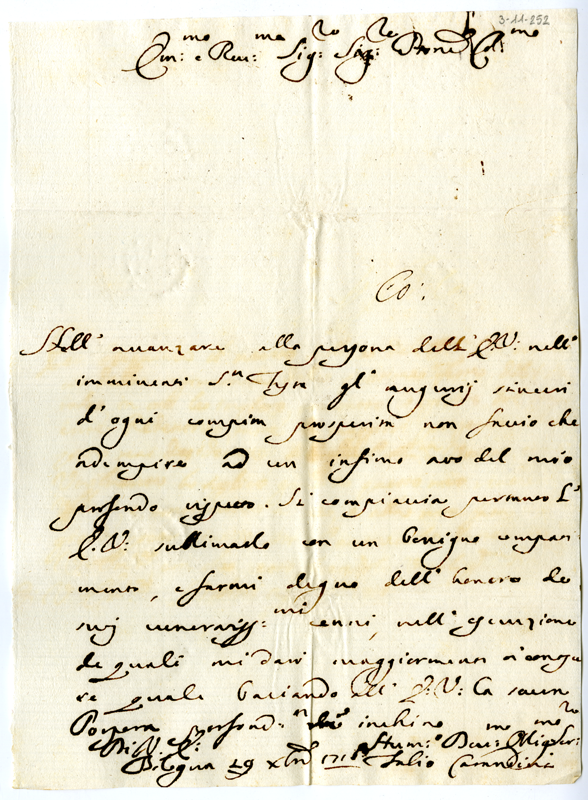 3-11-252
Em:mo e Reu:mo Sig:r Sig:r Prone Col:mo
Co:
Nell' auanzare alla persona dell' E.V: nell'
imminenti S.te feste gl' augurij sinceri
d' ogni compita prosperità non faccio che
adempire ad un infimo atto del mio
profondo rispetto. Si compiaccia pertanto L'
E.V: sublimarlo con un benigno compati
mento, e farmi degno dell' honore de
suoj veneratiss:mi cenni, nell' esecuzione
de quali mi darò maggiormente à conosce
re quale baciando all' E.V: la sacra
Porpora profond:te inchino
Di V. E:
Bologna 29 xbre
Humil:mo Deu:mo Oblig:mo Ser:
Carandini